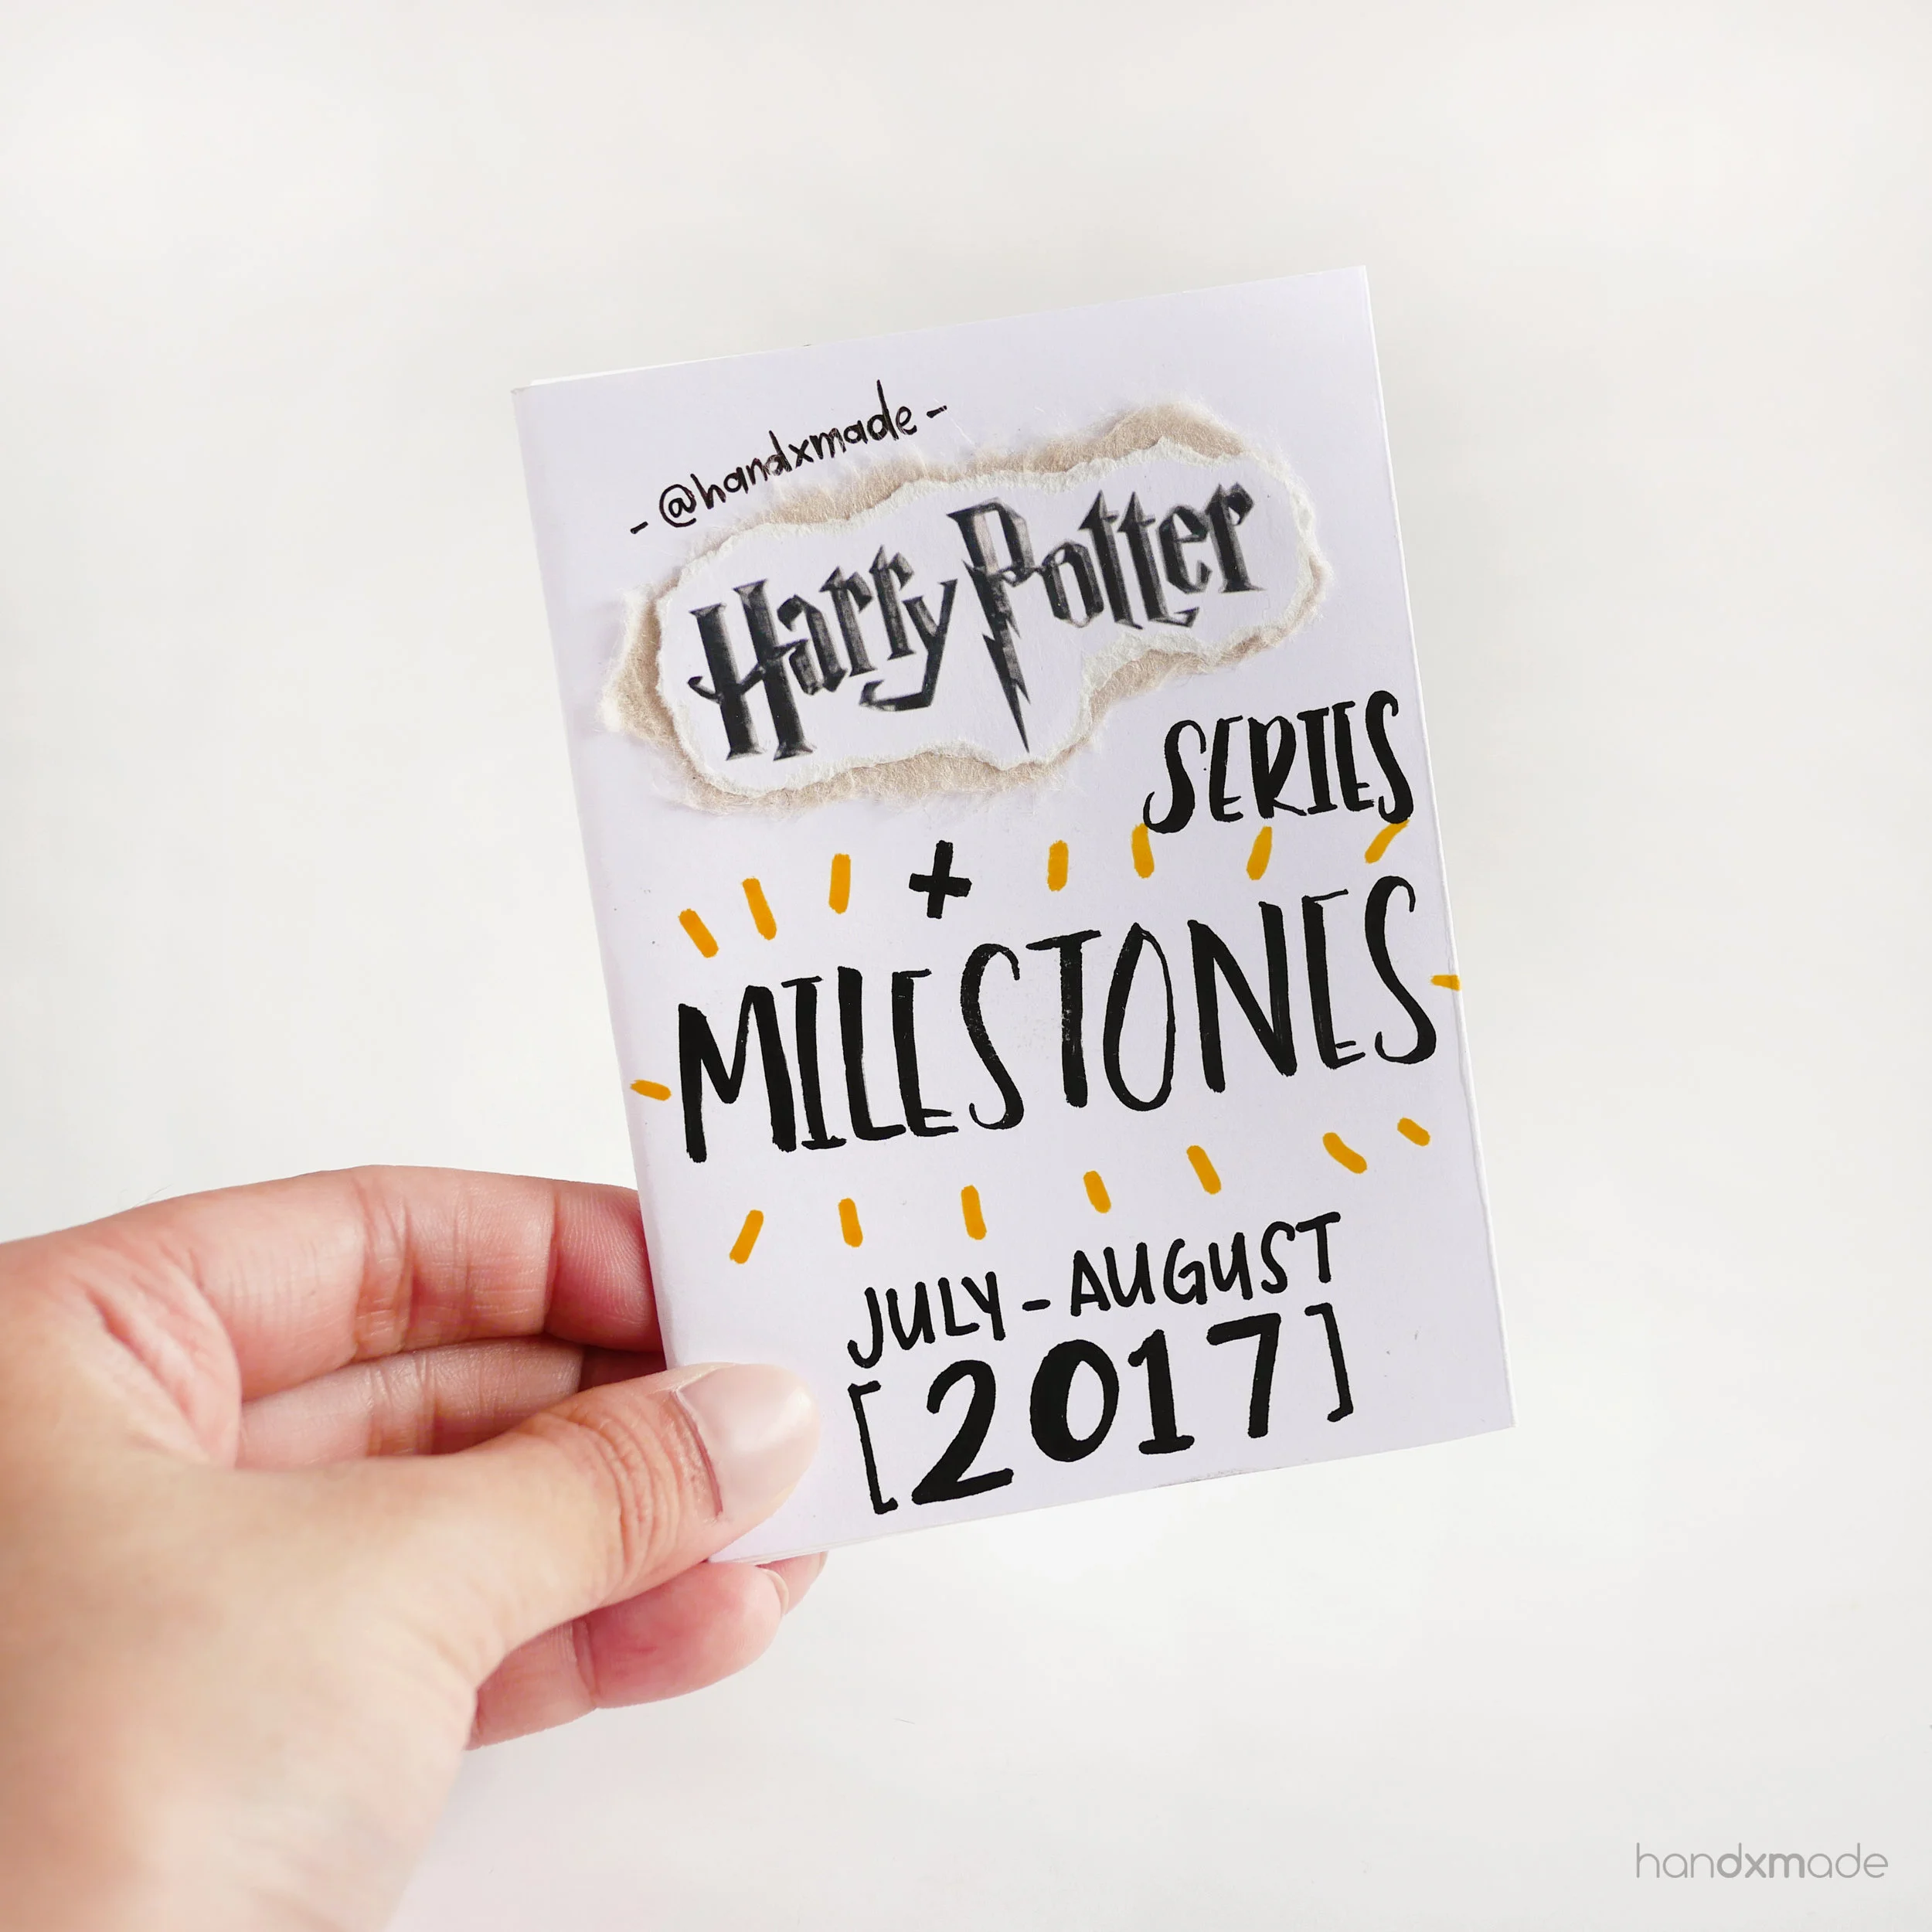 - @handxmade -
Harry Potter
SERIES
+
MILESTONES
JULY - AUGUST
[2017]
handxmade